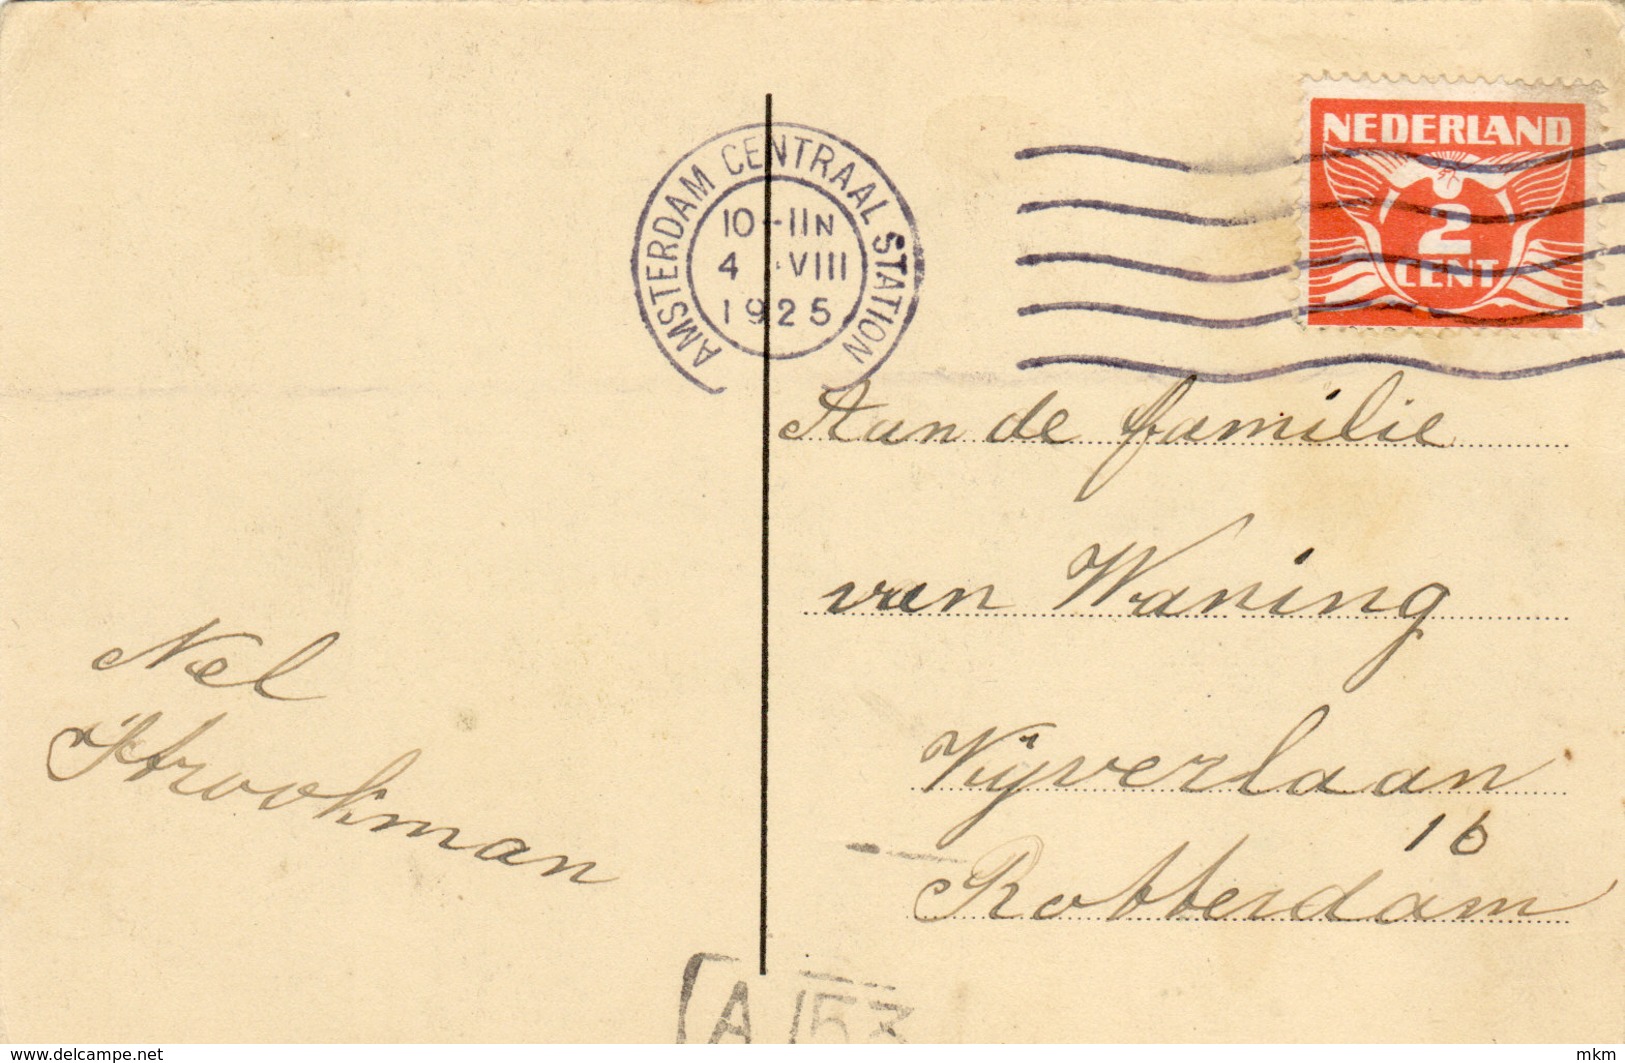 AMSTERDAM CENTRAAL STATION
10-11N
4 VIII
1925
NEDERLAND
2
CENT
Aan de familie
van Waning
Vijverlaan
16
Rotterdam
Nel
Strookman
A 153
www.delcampe.net
mkm